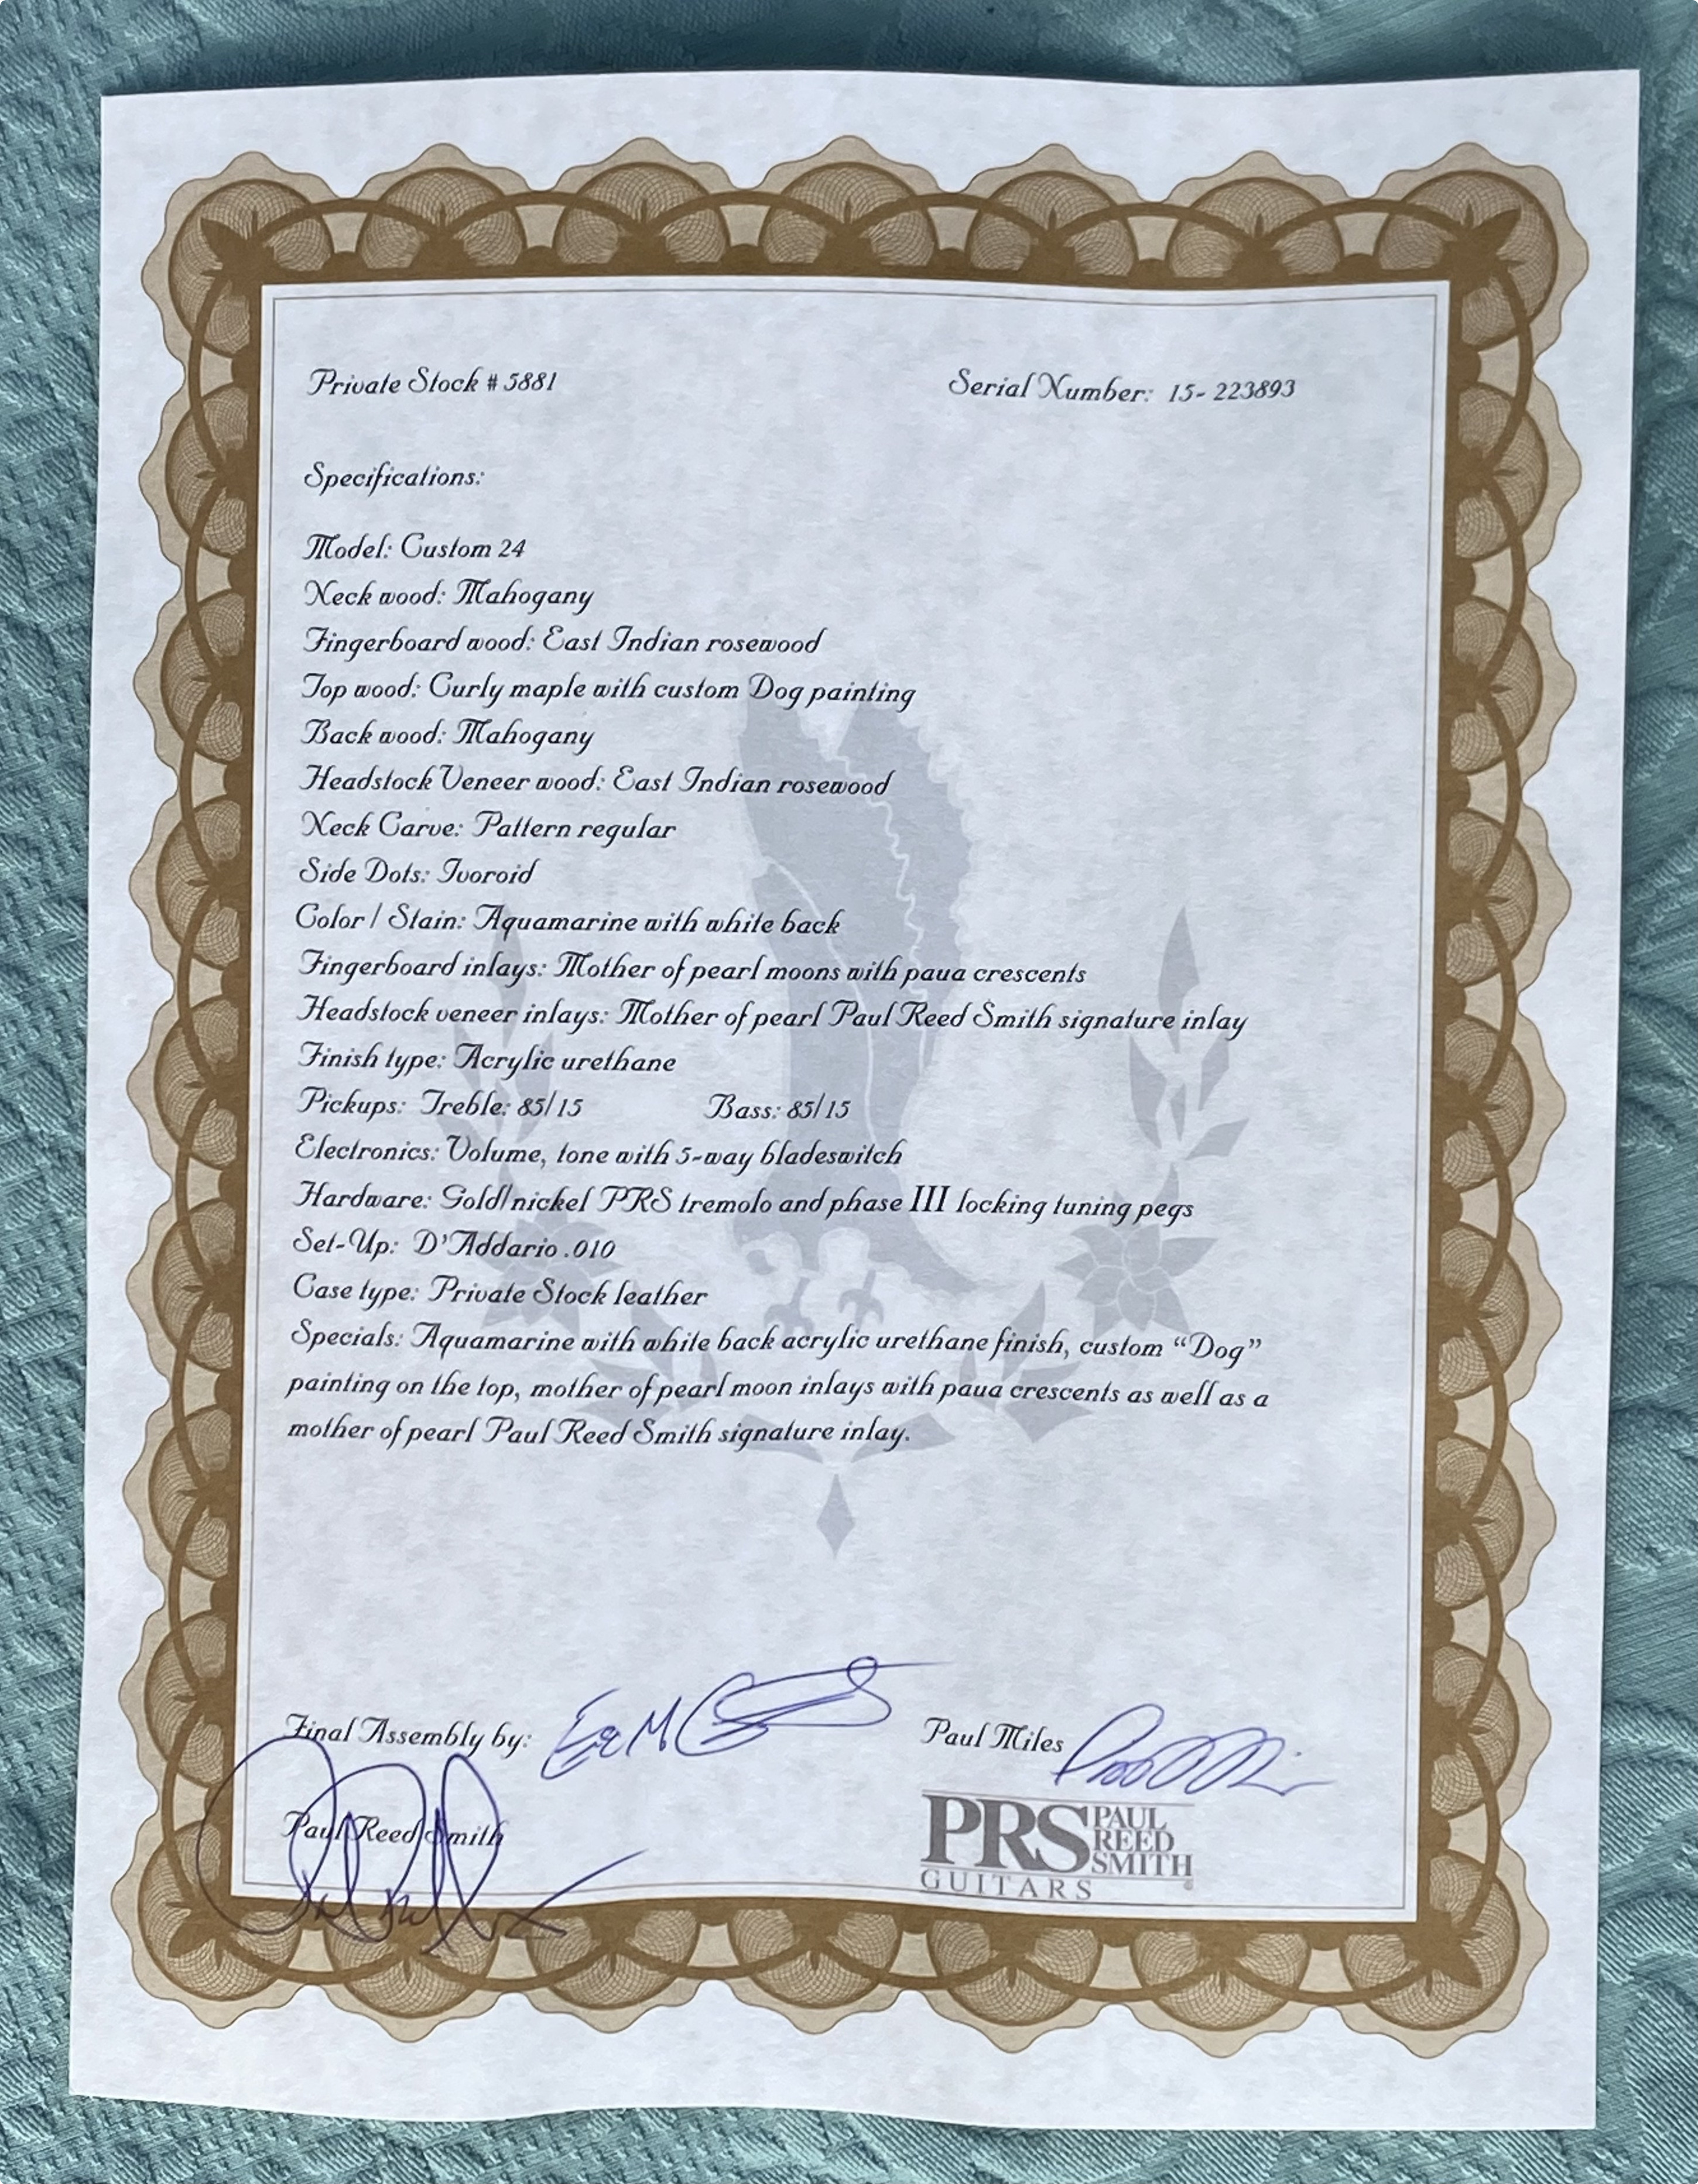 Private Stock # 5881 Serial Number: 15- 223893
Specifications:
Model: Custom 24
Neck wood: Mahogany
Fingerboard wood: East Indian rosewood
Top wood: Curly maple with custom Dog painting
Back wood: Mahogany
Headstock Veneer wood: East Indian rosewood
Neck Carve: Pattern regular
Side Dots: Ivoroid
Color / Stain: Aquamarine with white back
Fingerboard inlays: Mother of pearl moons with paua crescents
Headstock veneer inlays: Mother of pearl Paul Reed Smith signature inlay
Finish type: Acrylic urethane
Pickups: Treble: 85/15 Bass: 85/15
Electronics: Volume, tone with 5-way bladeswitch
Hardware: Gold/nickel PRS tremolo and phase III locking tuning pegs
Set-Up: D'Addario .010
Case type: Private Stock leather
Specials: Aquamarine with white back acrylic urethane finish, custom “Dog”
painting on the top, mother of pearl moon inlays with paua crescents as well as a
mother of pearl Paul Reed Smith signature inlay.
Final Assembly by: Paul Miles
Paul Reed Smith
PRS PAUL
REED
SMITH
GUITARS